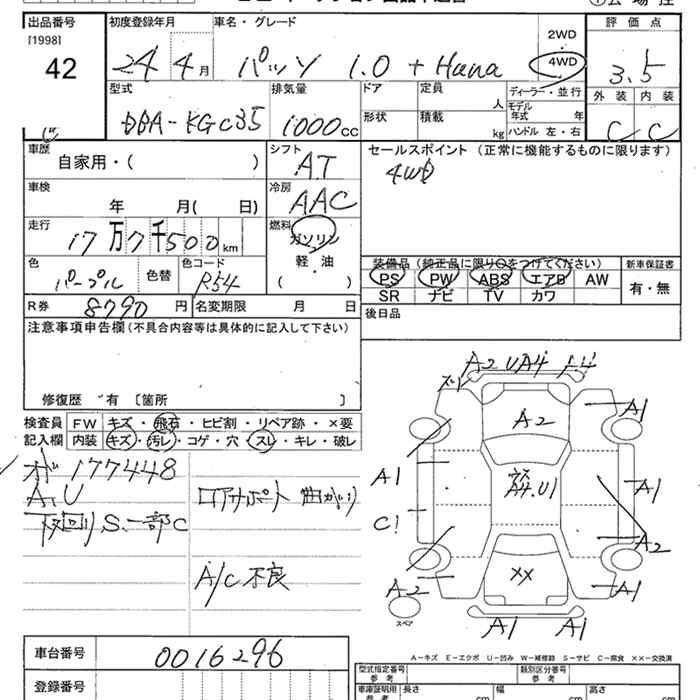 出品番号 初度登録年月 車名・グレード 2WD 評価点
[1998]
42 24年 4月 パッソ 1.0 + Hana 4WD 3.5
型式 排気量 ドア 定員 人 ディーラー・並行 外装 内装
モデル年式 年
DBA-KGC35 1000cc 形状 積載 kg ハンドル 左・右 C C
車歴 シフト セールスポイント (正常に機能するものに限ります)
自家用・( ) AT 4WD
車検 冷房
年 月( 日) AAC
走行 17万7千500km 燃料 ガソリン
軽・油
( )
色 パープル 色替 色コード R54
装備品 (純正品に限り○をつけてください) 新車保証書
PS PW ABS エアB AW 有・無
SR ナビ TV カワ
R券 8790円 名変期限 月 日 後日品
注意事項申告欄 (不具合内容等は具体的に記入して下さい)
修復歴 有 〔箇所 〕
検査員 FW キズ・飛石・ヒビ割・リペア跡・×要
記入欄 内装 キズ・汚レ・コゲ・穴・スレ・キレ・破レ
オド 177448
A、U ロアサポート 曲がり
下廻り S、一部C
A/C 不良
A2 U A4
A2 A1
A1 A4.U1 A1
C1 A2
A2 XX A1
スペア A1 A1
A-キズ E-エクボ U-凹み W-補修跡 S-サビ C-腐食 ××-交換済
車台番号 0016296 型式指定番号 参考 類別区分番号 参考
登録番号 車庫証明用 参考 長さ cm 幅 cm 高さ cm